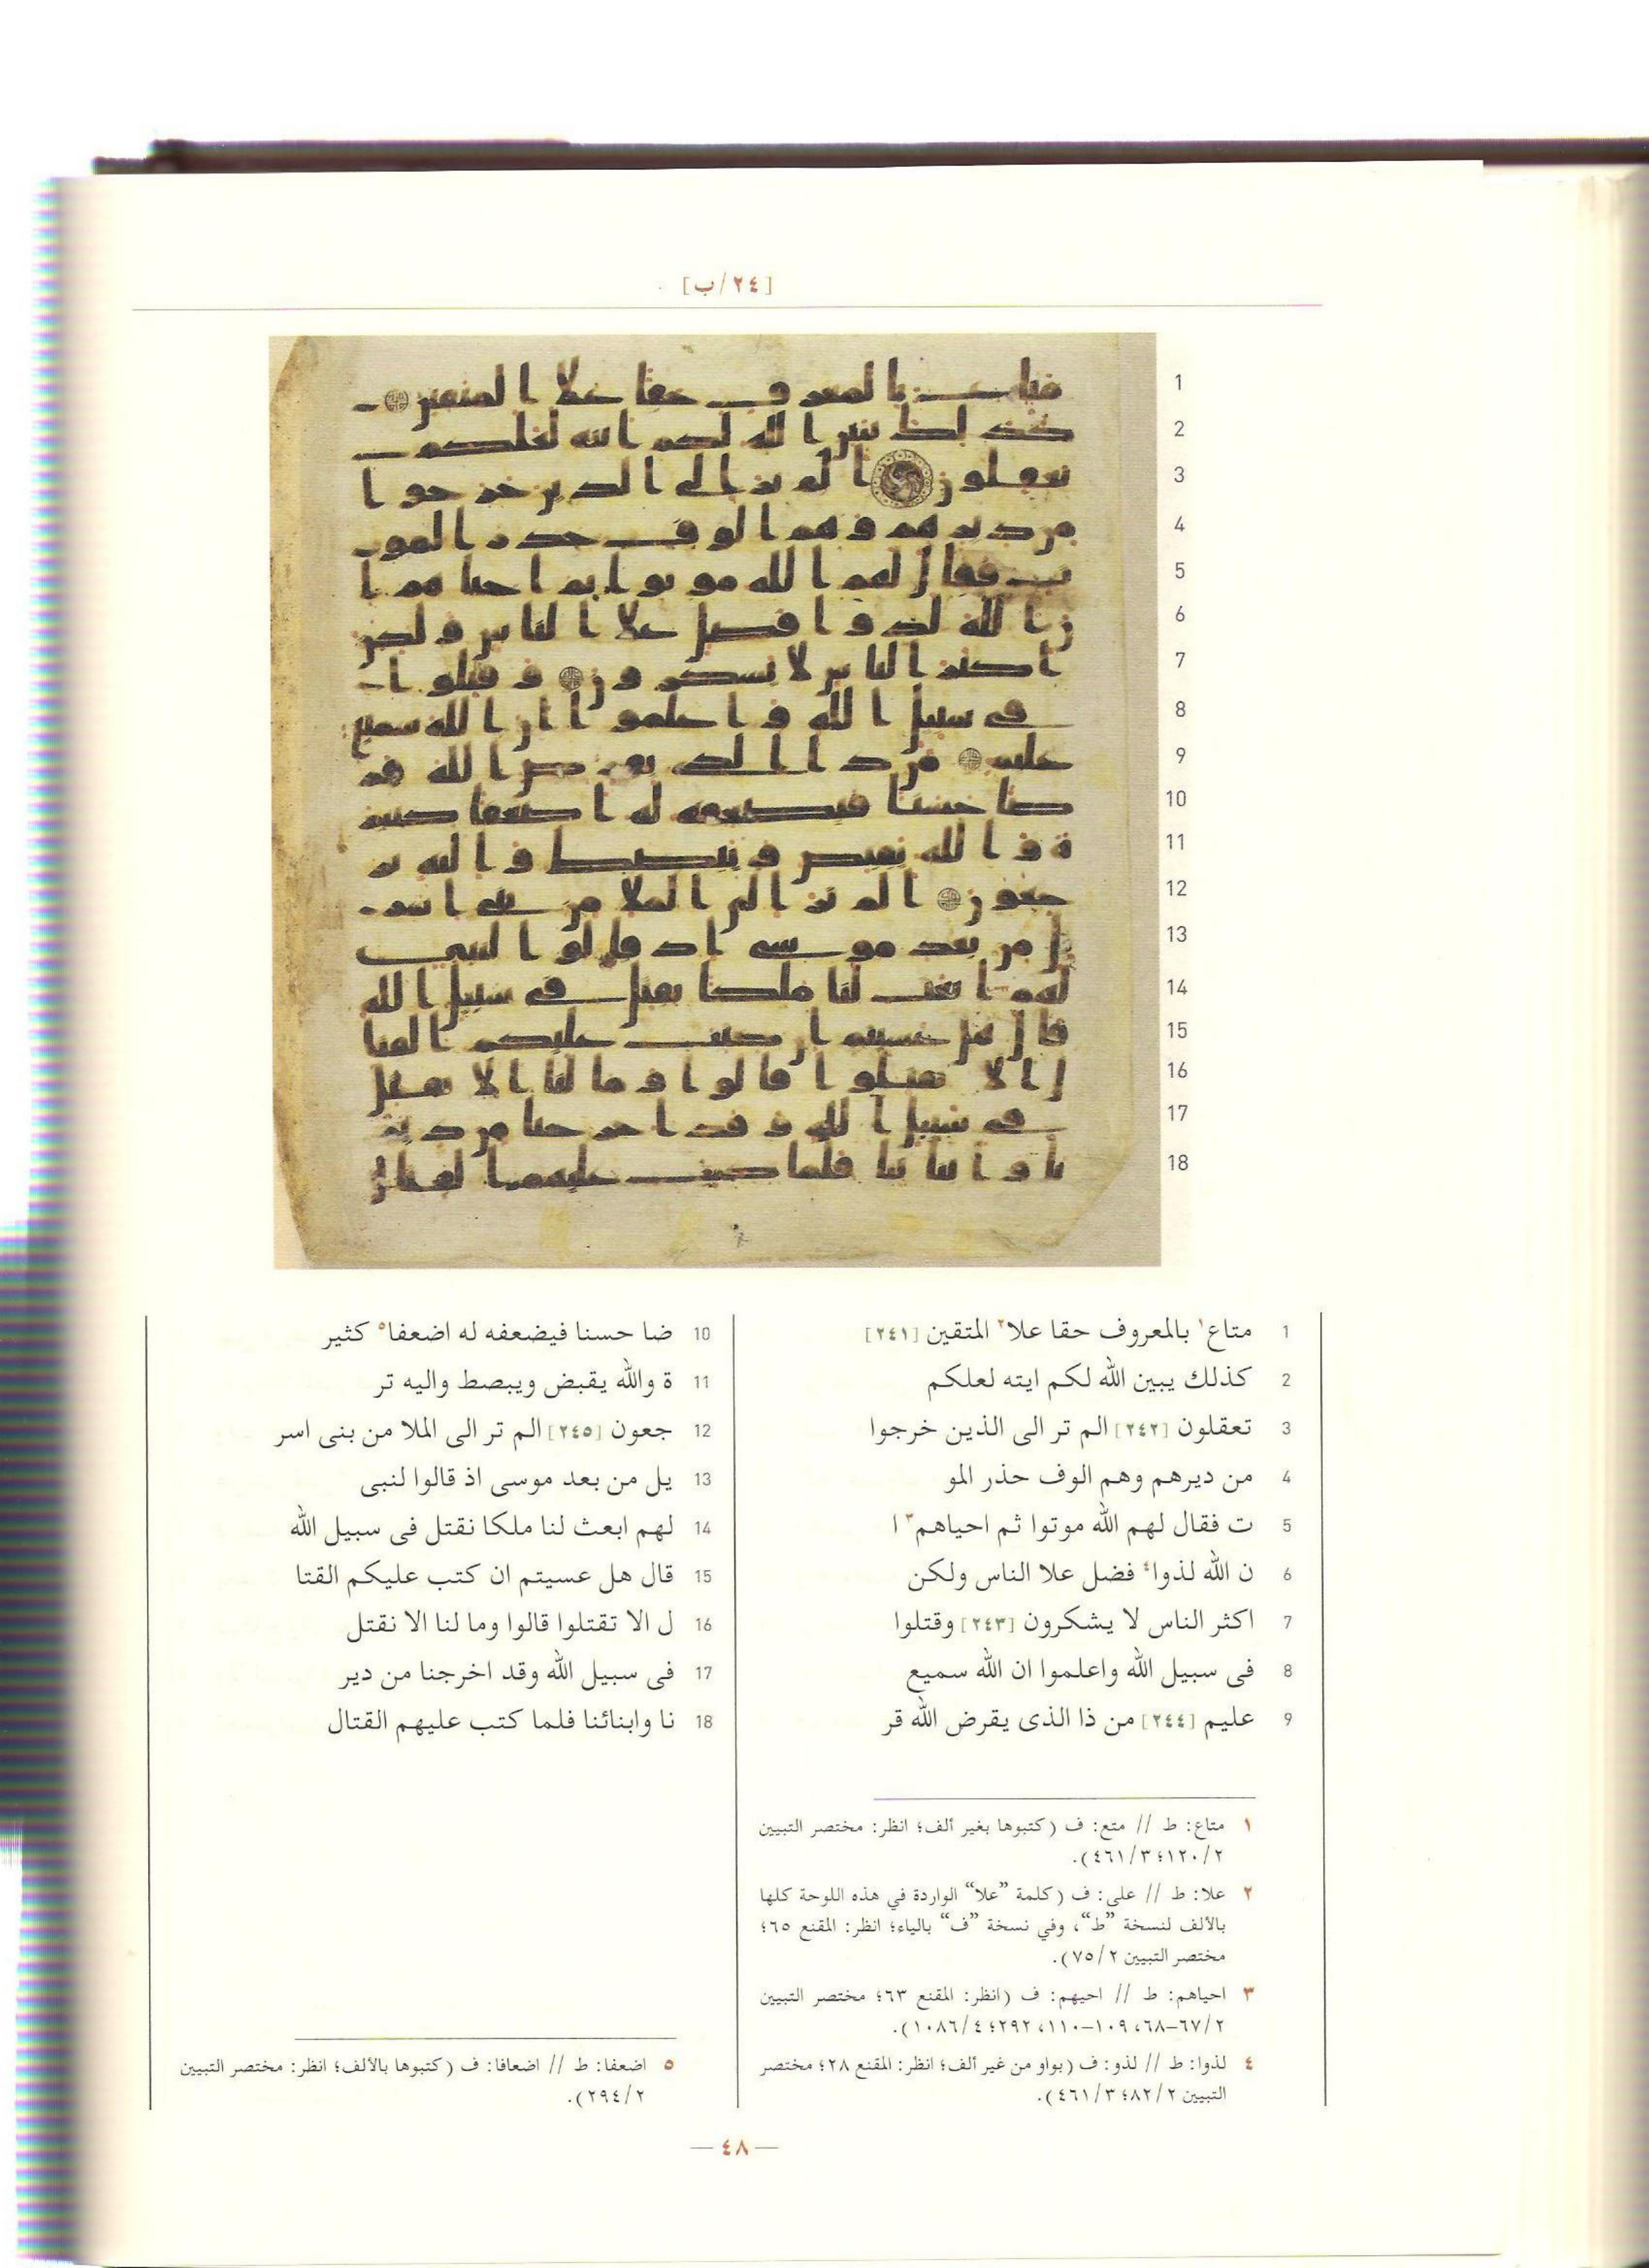 [٢٤/ب]
1 متاع١ بالمعروف حقا علا٢ المتقين [٢٤١]
2 كذلك يبين الله لكم ايته لعلكم
3 تعقلون [٢٤٢] الم تر الى الذين خرجوا
4 من ديرهم وهم الوف حذر المو
5 ت فقال لهم الله موتوا ثم احياهم٣ ا
6 ن الله لذوا٤ فضل علا الناس ولكن
7 اكثر الناس لا يشكرون [٢٤٣] وقتلوا
8 فى سبيل الله واعلموا ان الله سميع
9 عليم [٢٤٤] من ذا الذى يقرض الله قر
10 ضا حسنا فيضعفه له اضعفا٥ كثير
11 ة والله يقبض ويبصط واليه تر
12 جعون [٢٤٥] الم تر الى الملا من بنى اسر
13 يل من بعد موسى اذ قالوا لنبى
14 لهم ابعث لنا ملكا نقتل فى سبيل الله
15 قال هل عسيتم ان كتب عليكم القتا
16 ل الا تقتلوا قالوا وما لنا الا نقتل
17 فى سبيل الله وقد اخرجنا من دير
18 نا وابنائنا فلما كتب عليهم القتال
١ متاع: ط // متع: ف (كتبوها بغير ألف؛ انظر: مختصر التبيين
٢/١٢٠؛ ٣/٤٦١).
٢ علا: ط // على: ف (كلمة ”علا“ الواردة في هذه اللوحة كلها
بالألف لنسخة ”ط“، وفي نسخة ”ف“ بالياء؛ انظر: المقنع ٦٥؛
مختصر التبيين ٢/٧٥).
٣ احياهم: ط // احيهم: ف (انظر: المقنع ٦٣؛ مختصر التبيين
٢/٦٧–٦٨، ١٠٩–١١٠، ٢٩٢؛ ٤/١٠٨٦).
٤ لذوا: ط // لذو: ف (بواو من غير ألف؛ انظر: المقنع ٢٨؛ مختصر
التبيين ٢/٨٢؛ ٣/٤٦١).
٥ اضعفا: ط // اضعافا: ف (كتبوها بالألف؛ انظر: مختصر التبيين
٢/٢٩٤).
—٤٨—